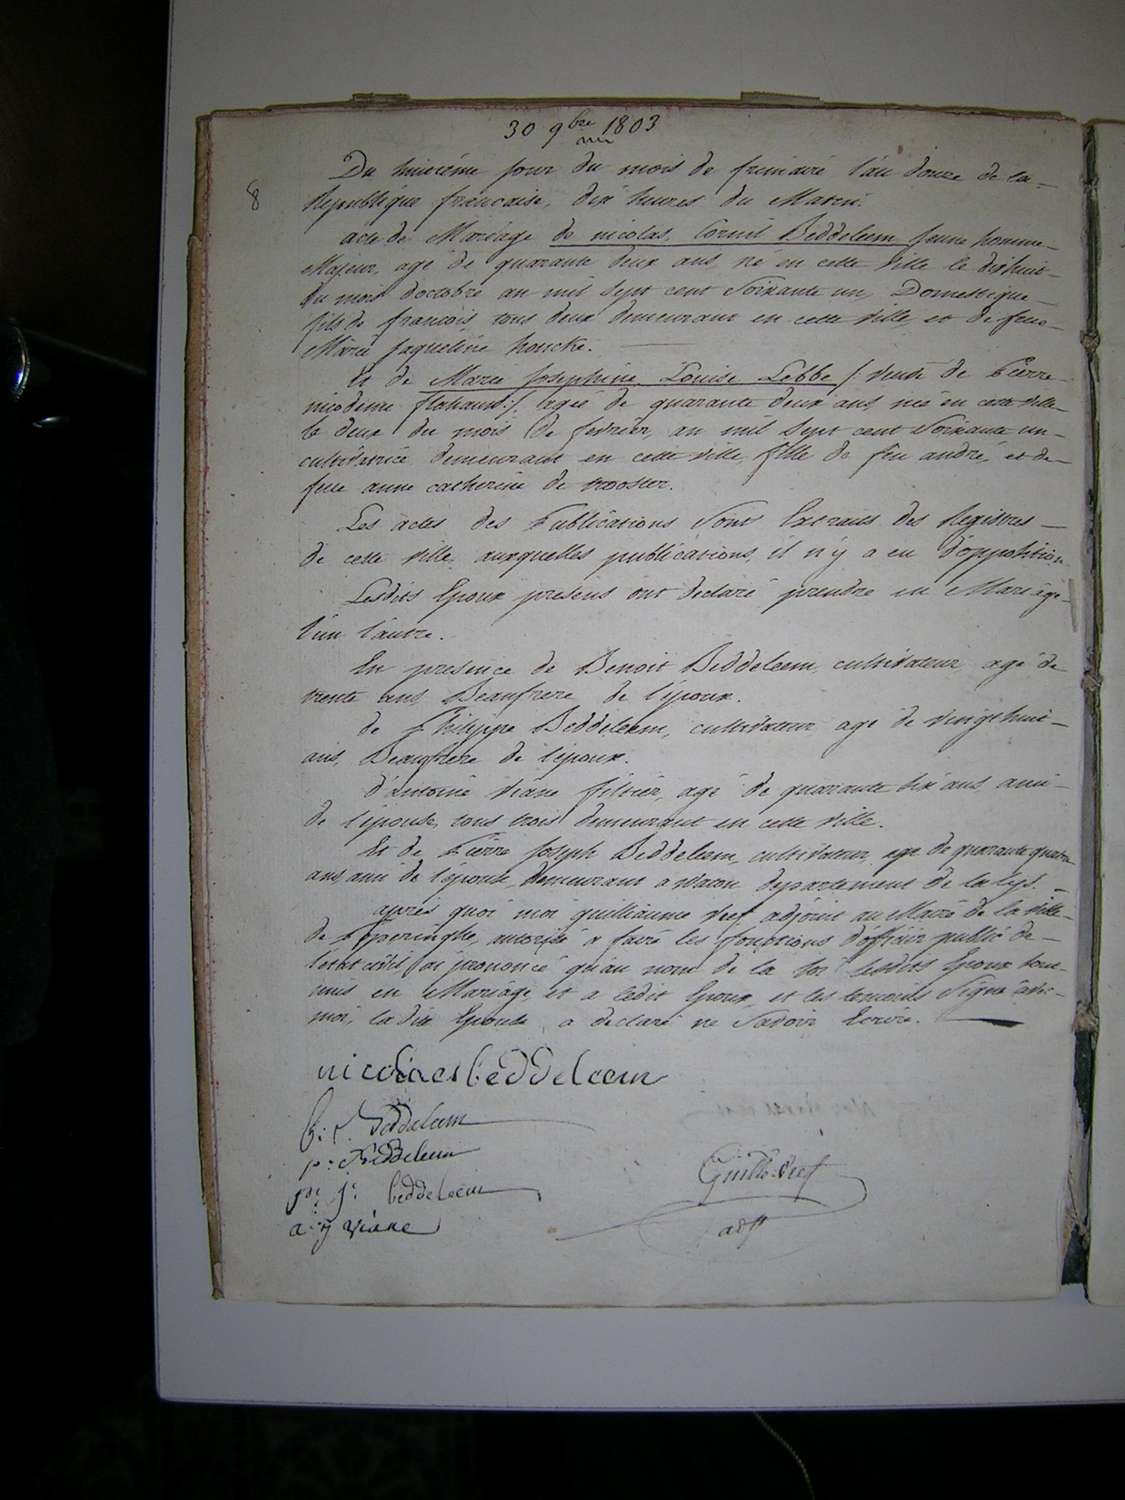 30 9bre 1803
8
Du huitiéme jour du mois de frimaire l'an douze de la
Republique francaise, dix heures du Matin.
acte de Mariage de nicolas, Cornil Beddeleem jeune homme
Majeur, agé de quarante deux ans, né en cette ville le dixhuit
du mois d'octobre an mil sept cent Soixante un, Domestique
fils de francois, tous deux demeurant en cette ville, et de feue
Marie Jaqueline houcke.
et de Marie Josephine Louise Lebbe /: veuve de Pierre
nicodeme :/ agée de quarante deux ans née en cette ville
le deux du mois de fevrier, an mil Sept cent Soixante un
cultivatrice demeurant en cette ville fille de feu andré, et de
feue anne catherine de
Les actes des Publications Sont Extraits des Registres
de cette ville, auxquelles publications, il n'y a eu d'opposition
Lesdits Epoux presens ont declaré prendre en Mariage
l'un l'autre.
En presence de Benoit Beddeleem, cultivateur, agé de
trente ans, Beaufrere de l'époux.
de Philippe Beddeleem, cultivateur agé de vingt huit
ans, Beaufrere de l'époux.
d'Antoine Viane agé de quarante six ans ami
de l'épouse, tous trois demeurant en cette ville.
Et de Pierre Joseph Beddeleem, cultivateur, agé de quarante quatre
ans ami de l'épouse, demeurant a watou departement de la lys.
aprés quoi moi guilliaume Vref adjoint au Maire de la ville
de Poperinghe, autorisé a faire les fonctions d'officier public de
l'etat civil, j'ai prononcé qu'au nom de la loi lesdits Epoux sont
unis en Mariage, et a ledit Epoux, et les temoins Signé avec
moi, la dite Epouse, a declaré ne Savoir Ecrire.
nicolaes beddeleem
b: f: Beddeleem
p: Beddeleem
pr: j: beddeleem
a: j viane
Guille. Vref
adjt